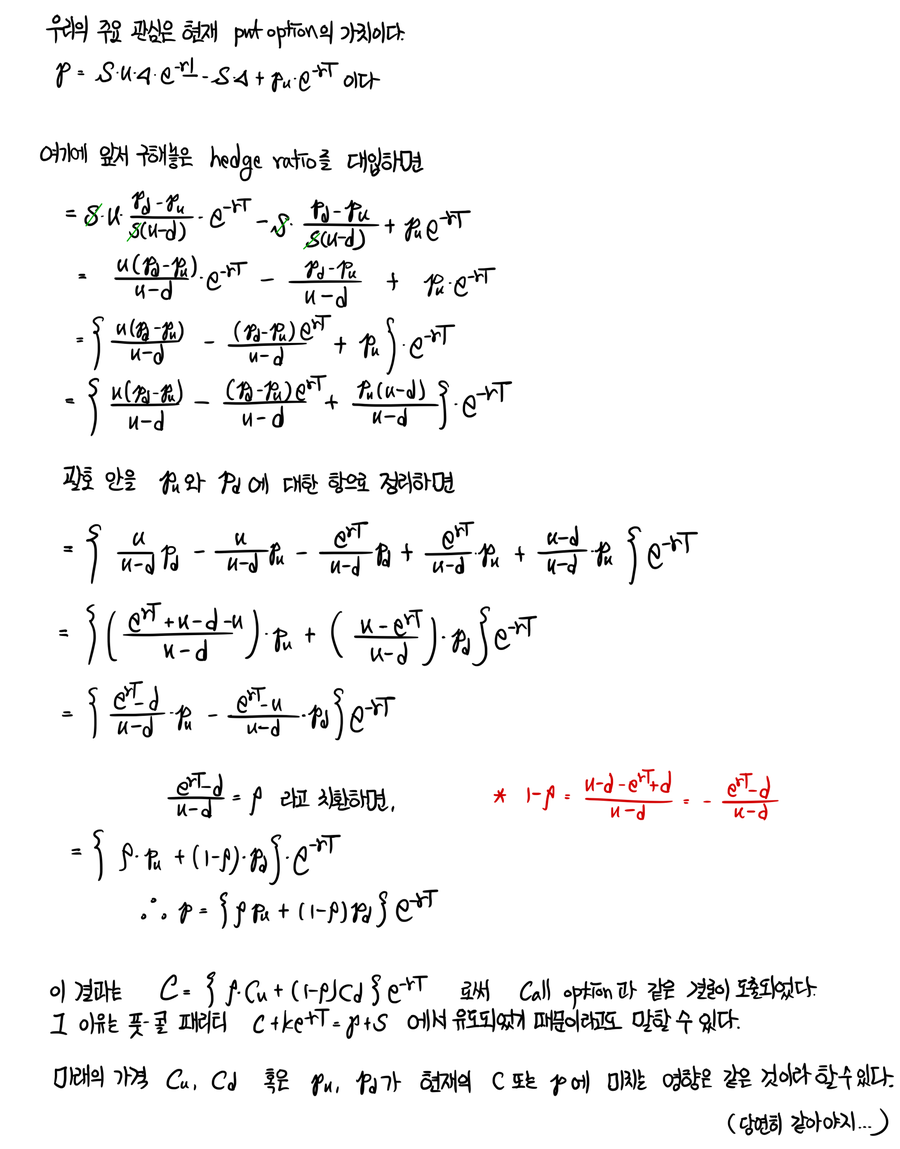 우리의 주요 관심은 현재 put option의 가치이다.
p = S·u·Δ·e^-rT - S·Δ + p_u·e^-rT 이다
여기에 앞서 구해놓은 hedge ratio를 대입하면
= S·u· (p_d-p_u)/(S(u-d)) ·e^-rT - S· (p_d-p_u)/(S(u-d)) + p_u e^-rT
= u(p_d-p_u)/(u-d) ·e^-rT - (p_d-p_u)/(u-d) + p_u·e^-rT
= { u(p_d-p_u)/(u-d) - (p_d-p_u)e^rT/(u-d) + p_u }·e^-rT
= { u(p_d-p_u)/(u-d) - (p_d-p_u)e^rT/(u-d) + p_u(u-d)/(u-d) }·e^-rT
괄호 안을 p_u와 p_d에 대한 항으로 정리하면
= { u/(u-d) p_d - u/(u-d) p_u - e^rT/(u-d) p_d + e^rT/(u-d)·p_u + (u-d)/(u-d)·p_u } e^-rT
= { ((e^rT+u-d-u)/(u-d))·p_u + ((u-e^rT)/(u-d))·p_d } e^-rT
= { (e^rT-d)/(u-d)·p_u - (e^rT-u)/(u-d)·p_d } e^-rT
(e^rT-d)/(u-d) = ρ 라고 치환하면,
* 1-ρ = (u-d-e^rT+d)/(u-d) = - (e^rT-d)/(u-d)
= { ρ·p_u + (1-ρ)·p_d }·e^-rT
∴ p = { ρ p_u + (1-ρ)p_d } e^-rT
이 결과는 C = { ρ·C_u + (1-ρ)C_d } e^-rT 로써 Call option과 같은 결론이 도출되었다.
그 이유는 풋-콜 패리티 C+ke^-rT = p+S 에서 유도되었기 때문이라고도 말할 수 있다.
미래의 가격 C_u, C_d 혹은 p_u, p_d가 현재의 C 또는 p에 미치는 영향은 같은 것이라 할 수 있다.
(당연히 같아야지...)